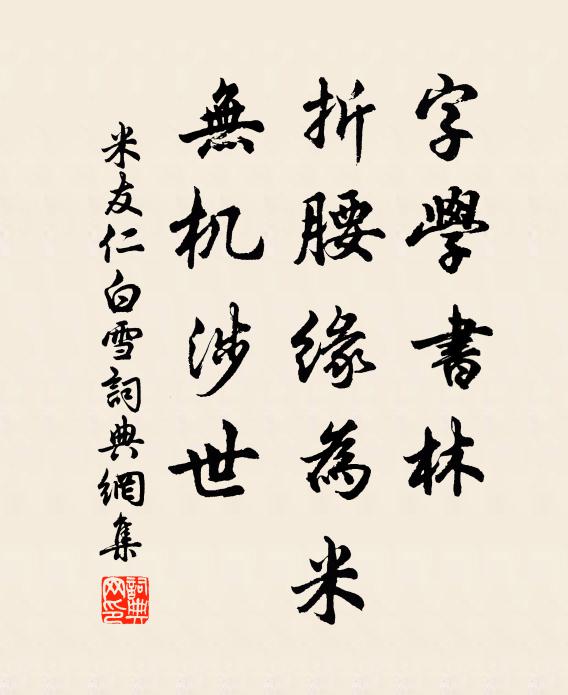 字學書林
折腰緣為米
無机涉世
米友仁白雪詞典網集
詞典网印